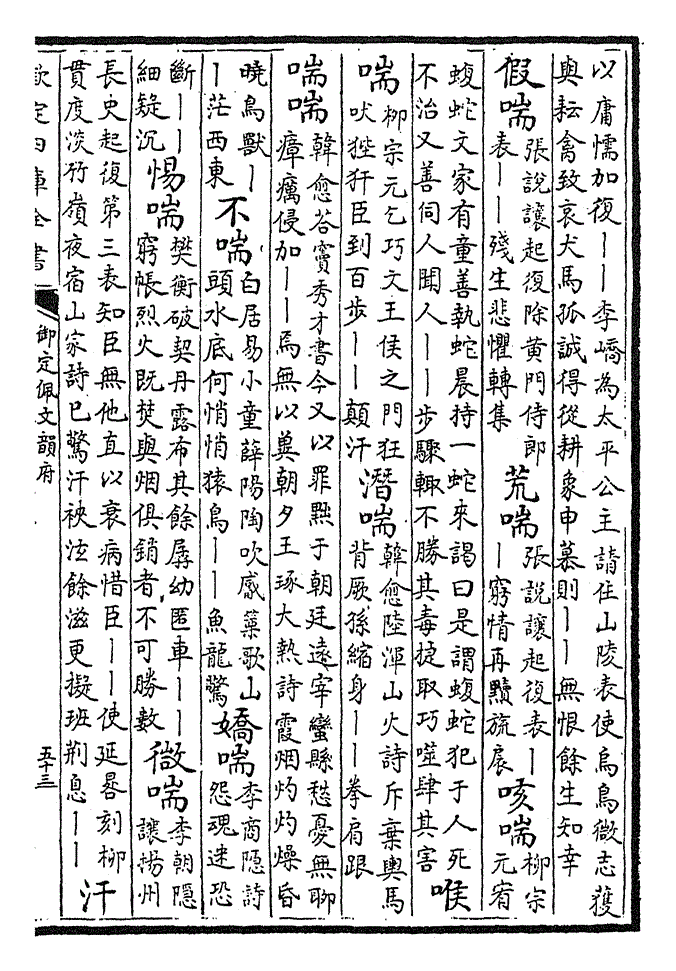 以庸懦加復丨丨李嶠為太平公主請住山陵表使烏鳥微志獲
與耘禽致哀犬馬孤誠得從耕象申慕則丨丨無恨餘生知幸
假喘
張說讓起復除黃門侍郎
表丨丨殘生悲懼轉集
荒喘
張說讓起復表丨
丨窮情再黷旒扆
咳喘
柳宗
元宥
蝮蛇文家有童善執蛇晨持一蛇來謁曰是謂蝮蛇犯于人死
不治又善伺人聞人丨丨步驟輒不勝其毒捷取巧噬肆其害
喉
喘
柳宗元乞巧文王侯之門狂
吠狴犴臣到百步丨丨顛汗
潛喘
韓愈陸渾山火詩斥棄輿馬
背厥孫縮身丨丨拳肩跟
喘喘
韓愈荅竇秀才書今又以罪黜于朝廷遠宰蠻縣愁憂無聊
瘴癘侵加丨丨焉無以冀朝夕王琢大熱詩霞烟灼灼燥昏
曉鳥獸丨
丨茫西東
不喘
白居易小童薛陽陶吹觱篥歌山
頭水底何悄悄猿鳥丨丨魚龍驚
嬌喘
李商隱詩
怨魂迷恐
斷丨丨
細疑沉
惕喘
樊衡破契丹露布其餘孱幼匿車丨丨
窮帳烈火既焚與烟俱銷者不可勝數
微喘
李朝隱
讓揚州
長史起復第三表知臣無他直以衰病惜臣丨丨使延晷刻柳
貫度淡竹嶺夜宿山家詩已驚汗袂泫餘滋更擬班荆息丨丨
汗
欽定四庫全書
御定佩文韻府
五十三